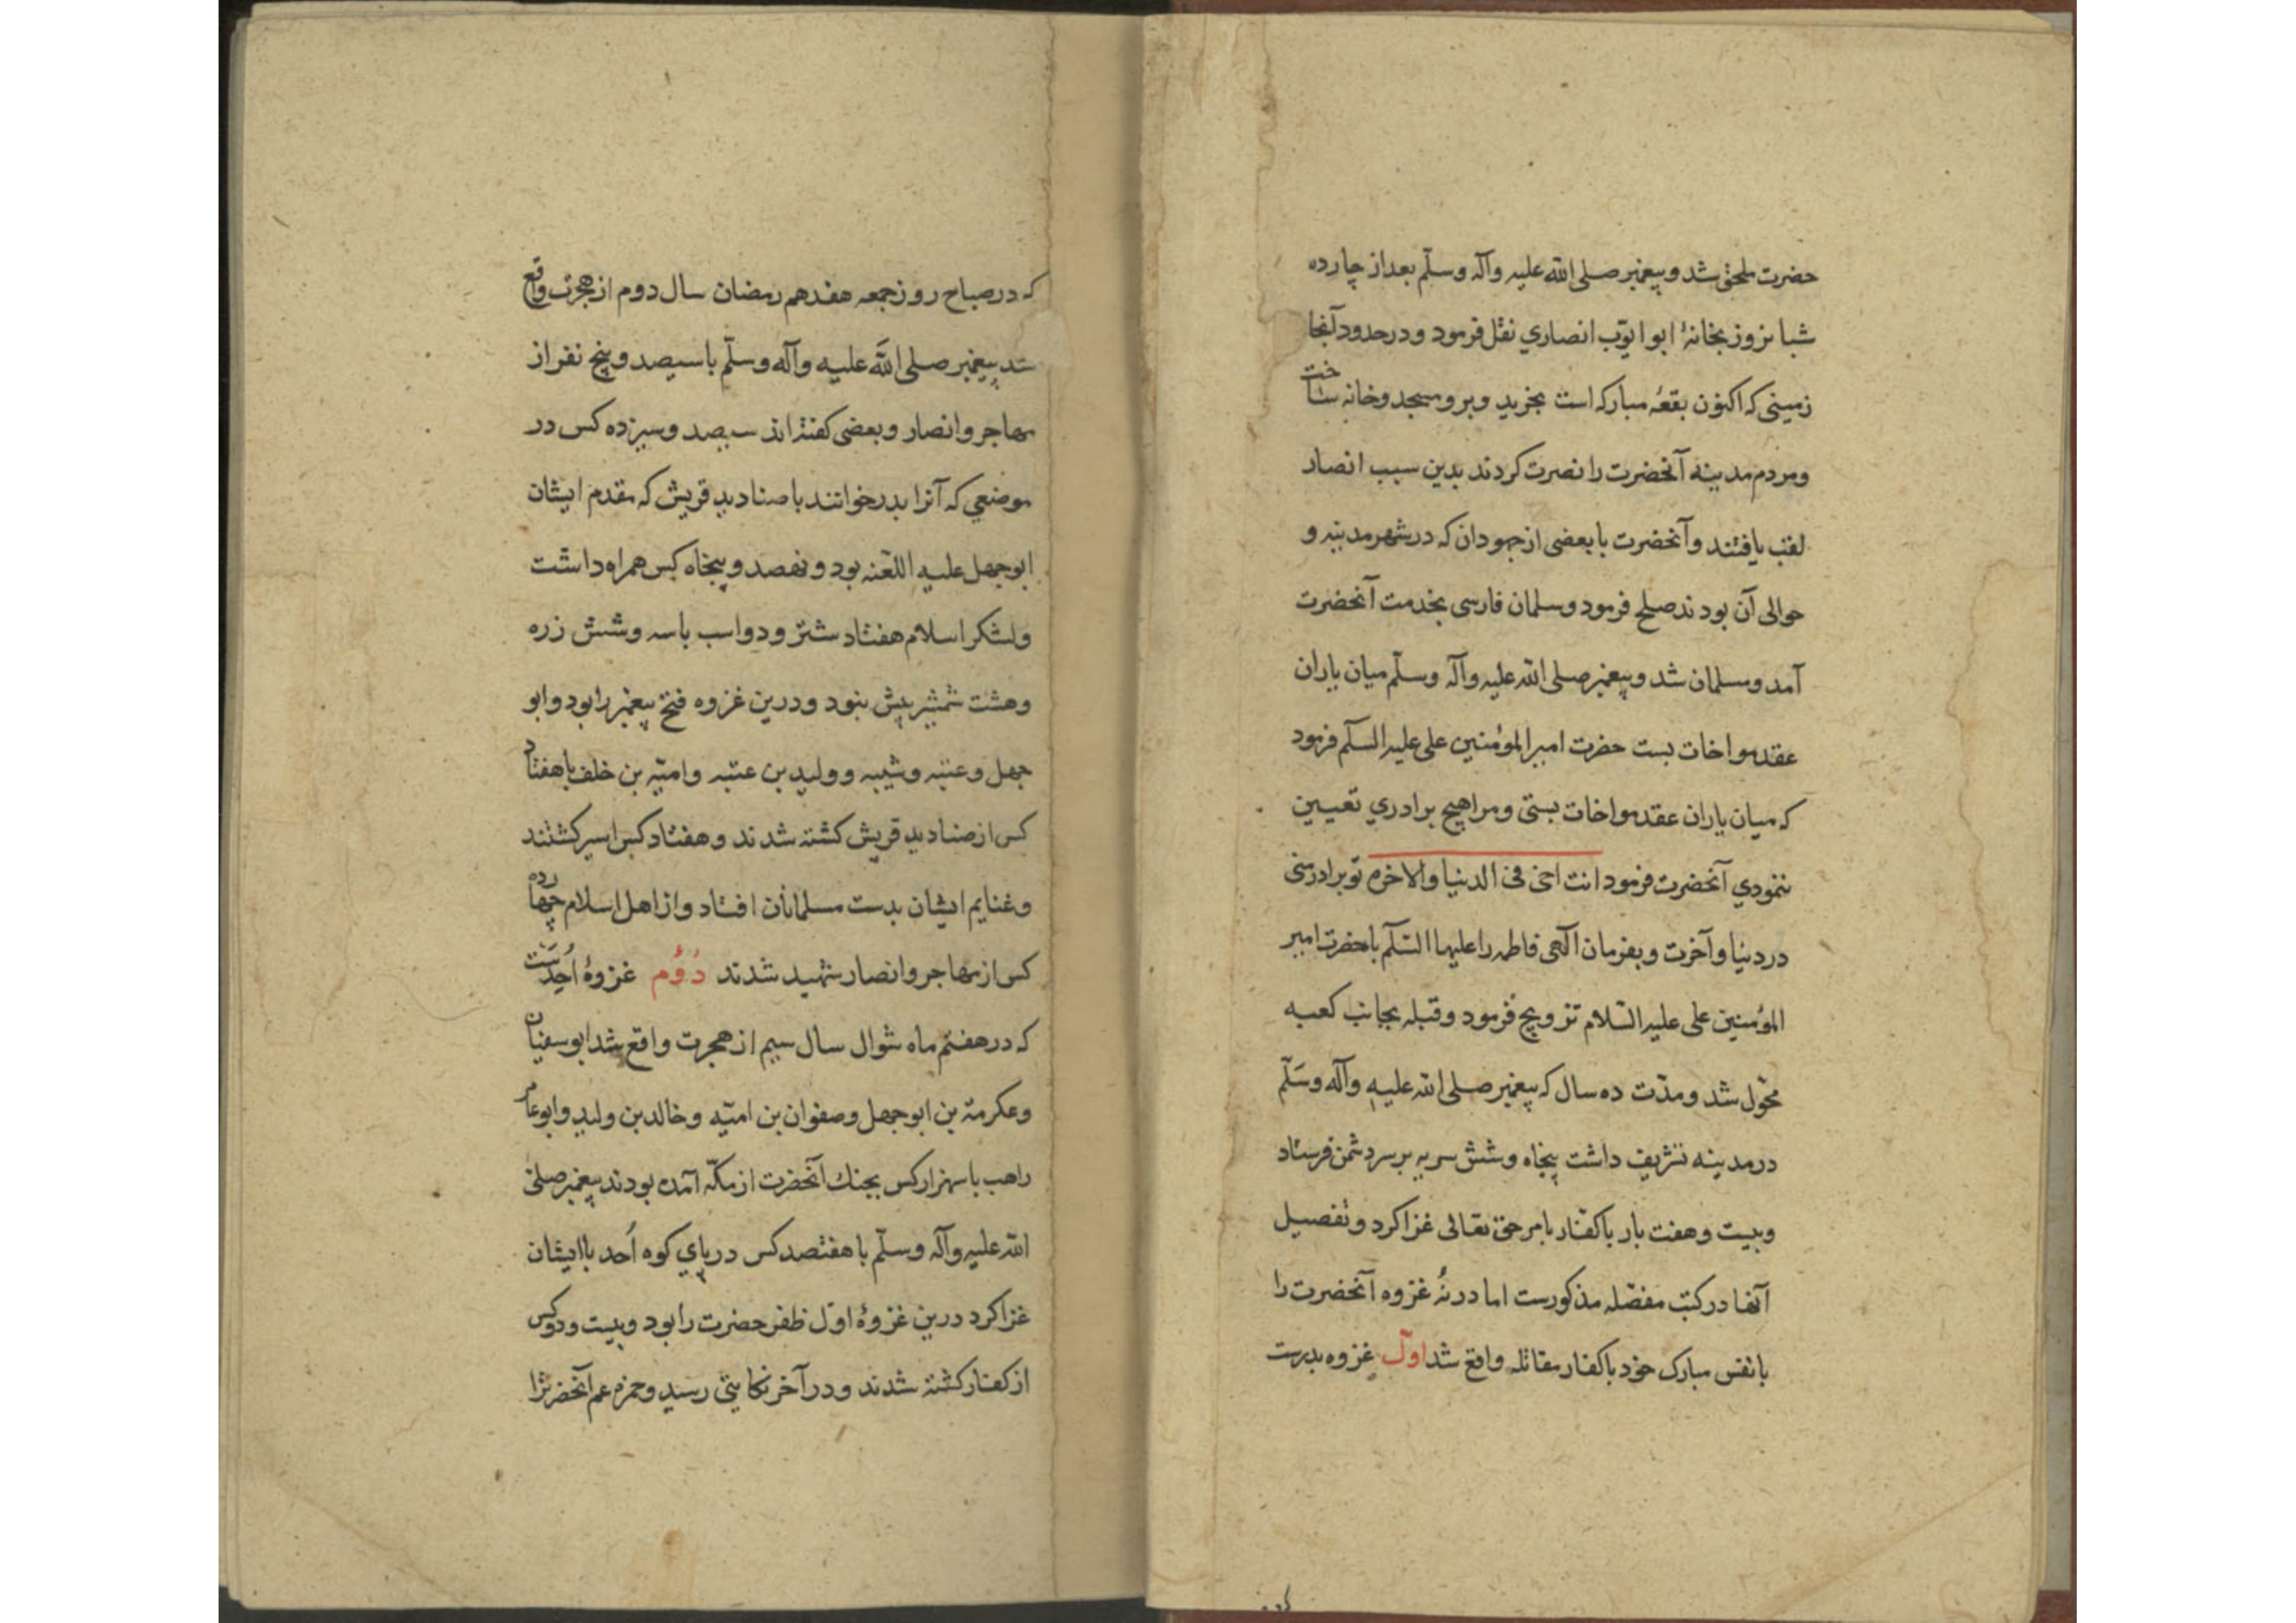 حضرت ملحق شد و پیغمبر صلی الله علیه وآله وسلّم بعد از چارده
شبا نروز بخانهٔ ابو ایوّب انصاري نقل فرمود و در حدود آنجا
زمینی که اکنون بقعهٔ مبارکه است بخرید و برو مسجد و خانه ساخت
ومردم مدینه آنحضرت را نصرت کردند بدین سبب انصار
لقب یافتند وآنحضرت با بعضی از جهودان که در شهر مدینه و
حوالی آن بودند صلح فرمود و سلمان فارسی بخدمت آنحضرت
آمد و مسلمان شد و پیغمبر صلی الله علیه وآله وسلّم میان یاران
عقد مواخات بست حضرت امیر المؤمنین علی علیه السلّم فرمود
که میان یاران عقد مواخات بستی و مرا هیچ برادري تعیین
ننمودي آنحضرت فرمود انت اخی فی الدنیا والاخره تو برادر منی
در دنیا و آخرت و بفرمان آلهی فاطمه را علیها السّلم با حضرت امیر
المؤمنین علی علیه السّلام تزویج فرمود وقبله بجانب کعبه
محوّل شد و مدّت ده سال که پیغمبر صلی الله علیه وآله وسَلّم
در مدینه تشریف داشت پنجاه وشش سریه بر سر دشمن فرستاد
وبیست وهفت بار با کفّار بامر حق تعالی غزا کرد و تفصیل
آنها در کتب مفصّله مذکورست اما در نُه غزوه آنحضرت را
با نفس مبارک خود با کفار مقاتله واقع شد اوّل غزوه بدرست
که در صباح روز جمعه هفدهم رمضان سال دوم از هجرت واقع
شد پیغمبر صلی اللَّه علیه وآله وسلّم با سیصد و پنج نفر از
مهاجر وانصار وبعضی کفته اند سیصد وسیزده کس در
موضعي که آنرا بدر خوانند با صنادید قریش که مقدم ایشان
ابو جهل علیه اللّعنه بود و نهصد و پنجاه کس همراه داشت
ولشکر اسلام هفتاد شتر و دو اسب با سه وشش زره
وهشت شمشیر بیش نبود و درین غزوه فتح پیغمبر را بود وابو
جهل و عتبه و شیبه و ولید بن عتبه وامیّه بن خلف با هفتاد
کس از صنادید قریش کشته شدند و هفتاد کس اسیر کشتند
وغنایم ایشان بدست مسلمانان افتاد واز اهل اسلام چهارده
کس از مهاجر وانصار شهید شدند دُوُم غزوهٔ اُحدَست
که در هفتم ماه شوال سال سیم از هجرت واقع شد ابو سفیان
وعکرمة بن ابو جهل و صفوان بن امیّه و خالد بن ولید وابو عامر
راهب با سه هزار کس بجنك آنحضرت از مکّه آمده بودند پیغمبر صلی
الله علیه وآله وسلّم با هفتصد کس در پاي کوه اُحد با ایشان
غزا کرد درین غزوهٔ اوّل ظفر حضرت را بود وبیست ودو کس
از کفار کشته شدند ودر آخر نکایتی رسید وحمزه عم آنحضرترا